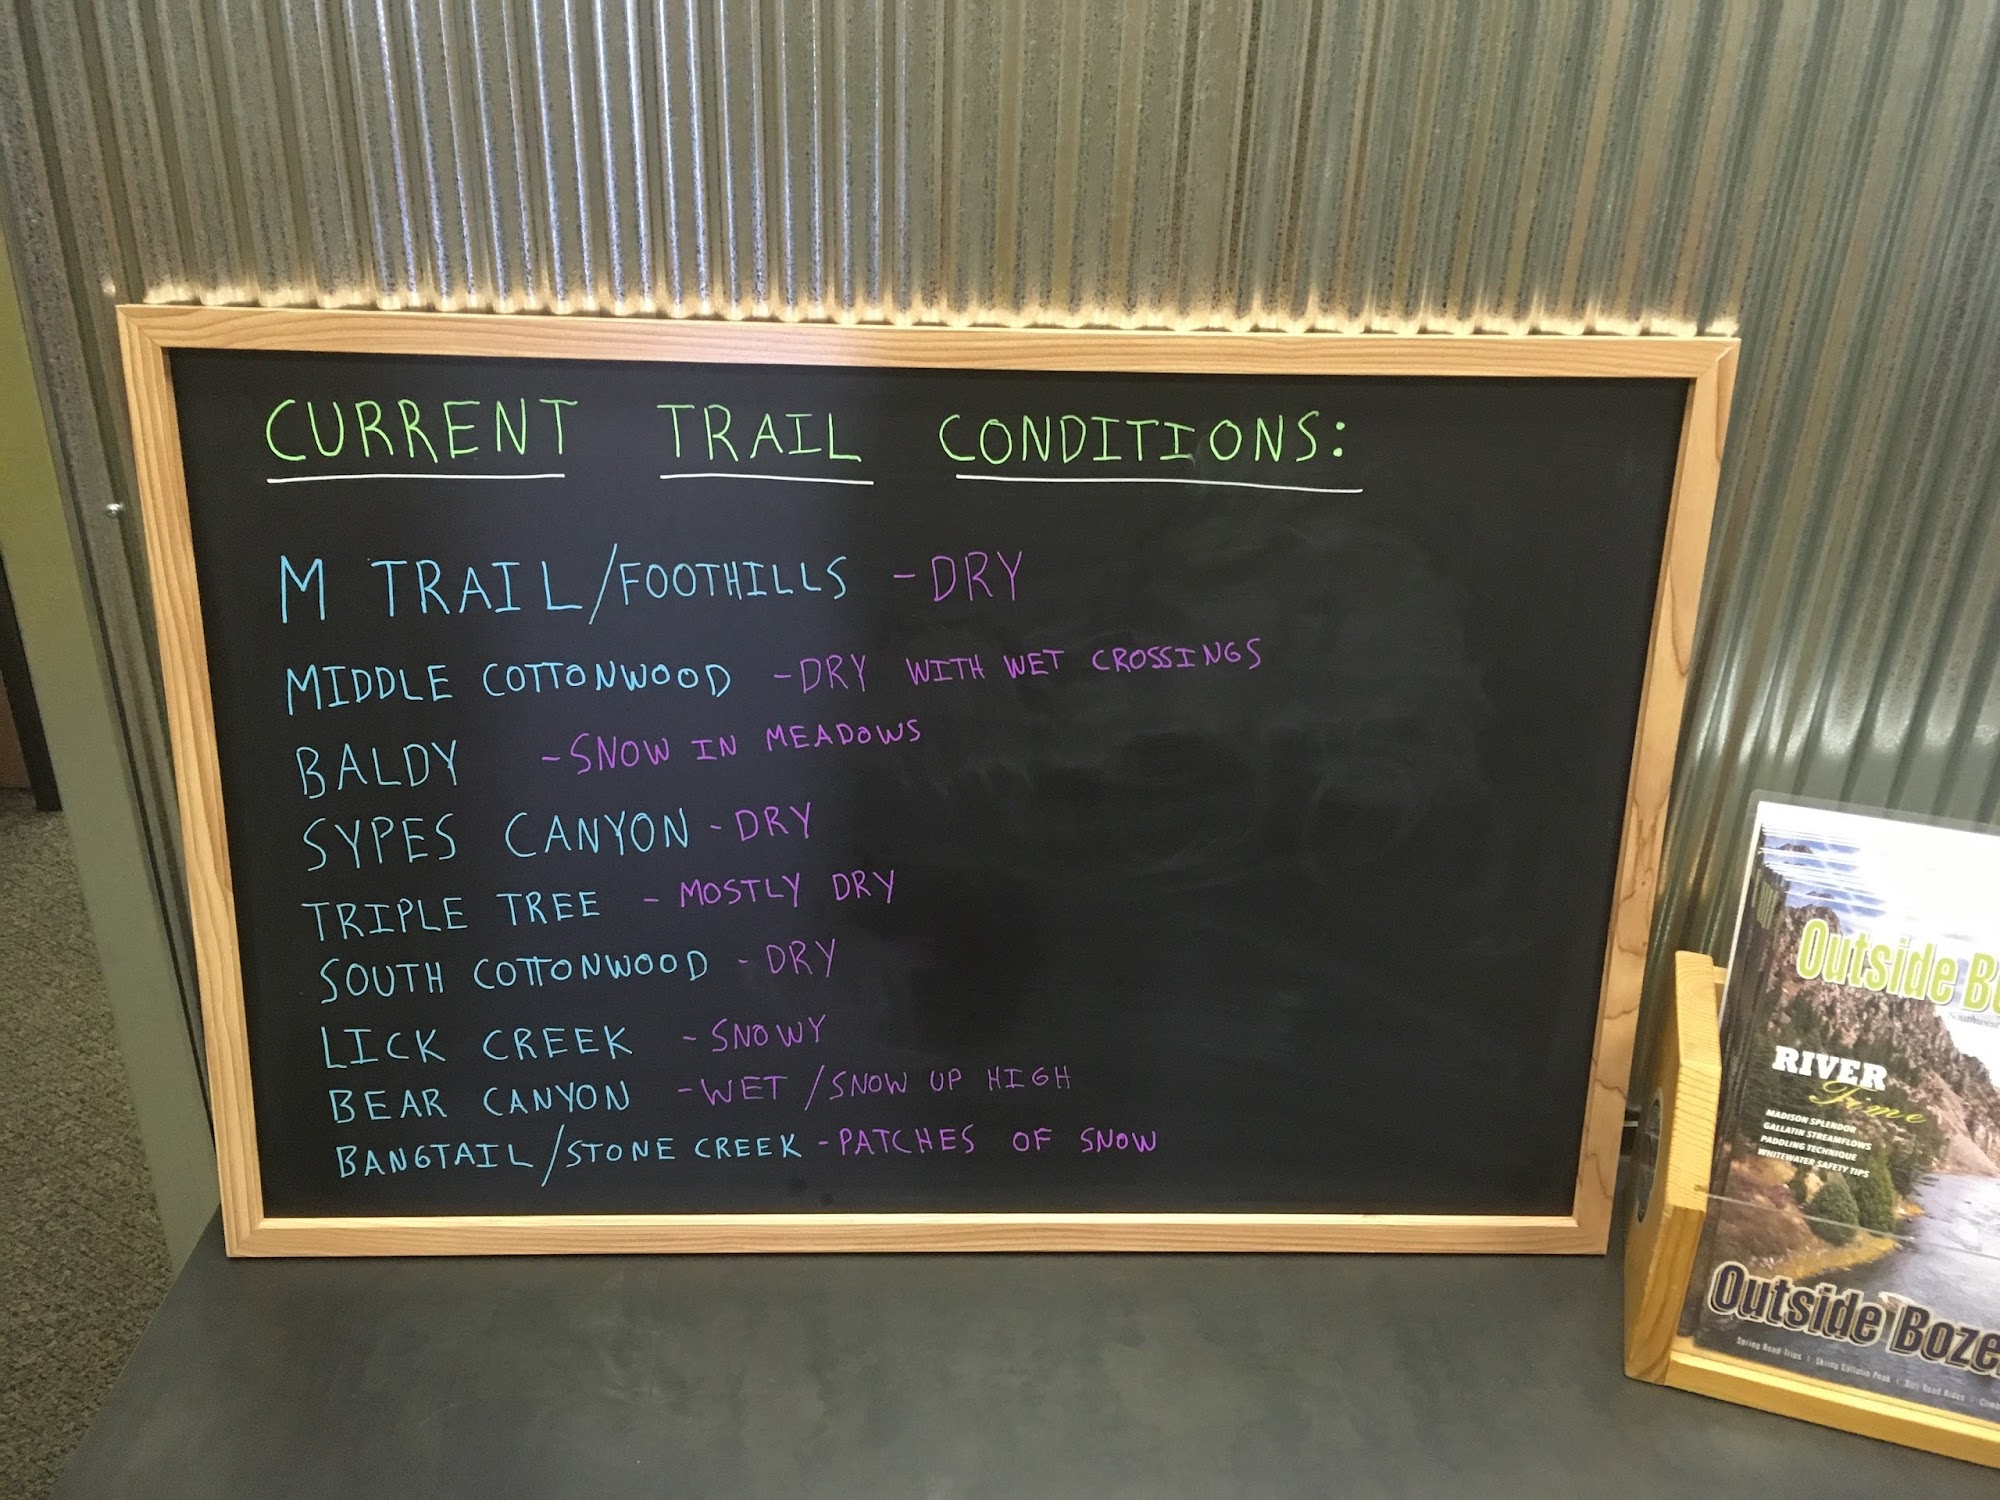 CURRENT TRAIL CONDITIONS:
M TRAIL/FOOTHILLS - DRY
MIDDLE COTTONWOOD - DRY WITH WET CROSSINGS
BALDY - SNOW IN MEADOWS
SYPES CANYON - DRY
TRIPLE TREE - MOSTLY DRY
SOUTH COTTONWOOD - DRY
LICK CREEK - SNOWY
BEAR CANYON - WET / SNOW UP HIGH
BANGTAIL/STONE CREEK - PATCHES OF SNOW
Outside
Southwest
RIVER
Time
MADISON SPLENDOR
GALLATIN STREAMFLOWS
PADDLING TECHNIQUE
WHITEWATER SAFETY TIPS
Outside Boze
Spring Road Trips | Skiing Gallatin Peak | Dirt Road Rides |